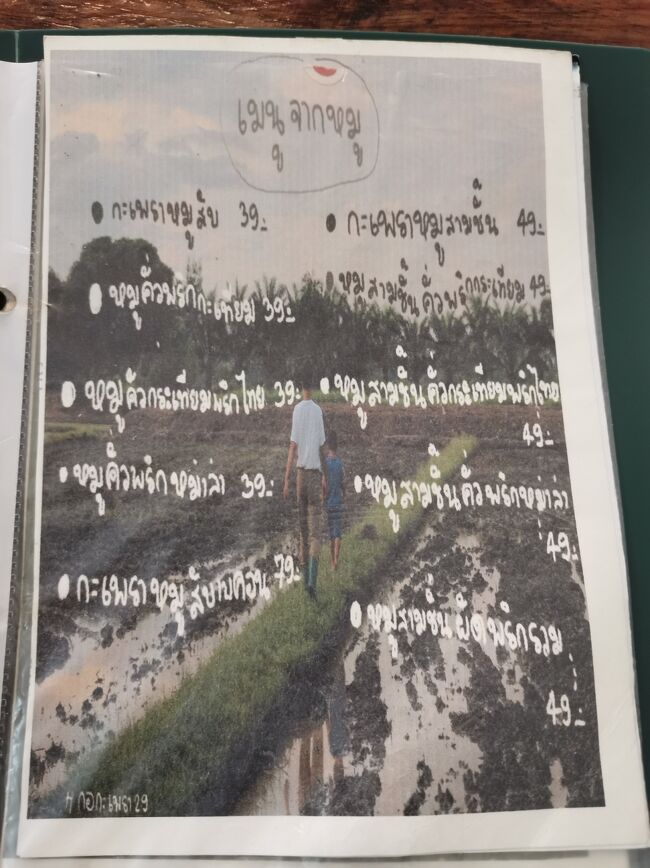 เมนูจากหมู
• กะเพราหมูสับ 39.-
• หมูคั่วพริกกะเทียม 39.-
• หมูคั่วกระเทียมพริกไทย 39.-
• หมูคั่วพริกหม่าล่า 39.-
• กะเพราหมูสับเบคอน 79.-
• กะเพราหมูสามชั้น 49.-
• หมูสามชั้นคั่วพริกกระเทียม 49.-
• หมูสามชั้นคั่วกระเทียมพริกไทย
49.-
• หมูสามชั้นคั่วพริกหม่าล่า
49.-
• หมูสามชั้นผัดพริกรวม
49.-
กะเพรา 29